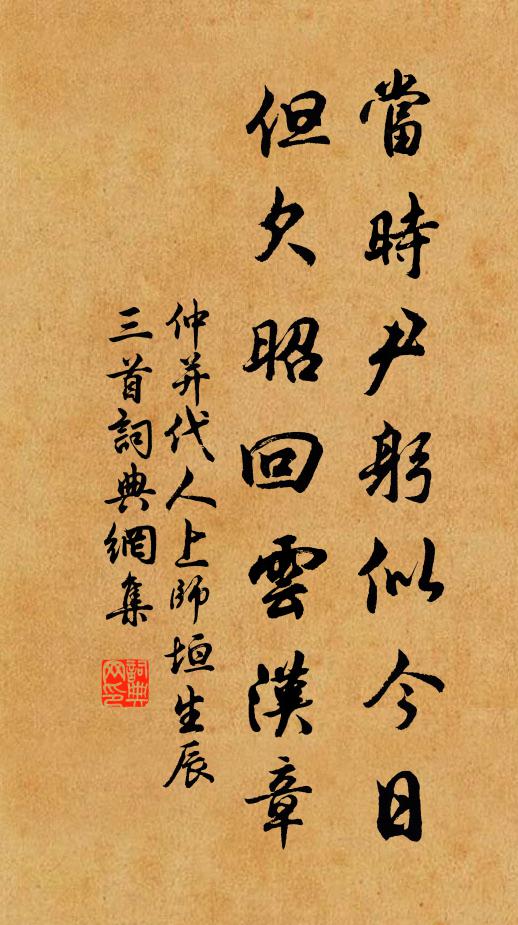 當時尹躬似今日
但欠昭回雲漢章
仲并代人上師垣生辰
三首詞典網集
詞典網印